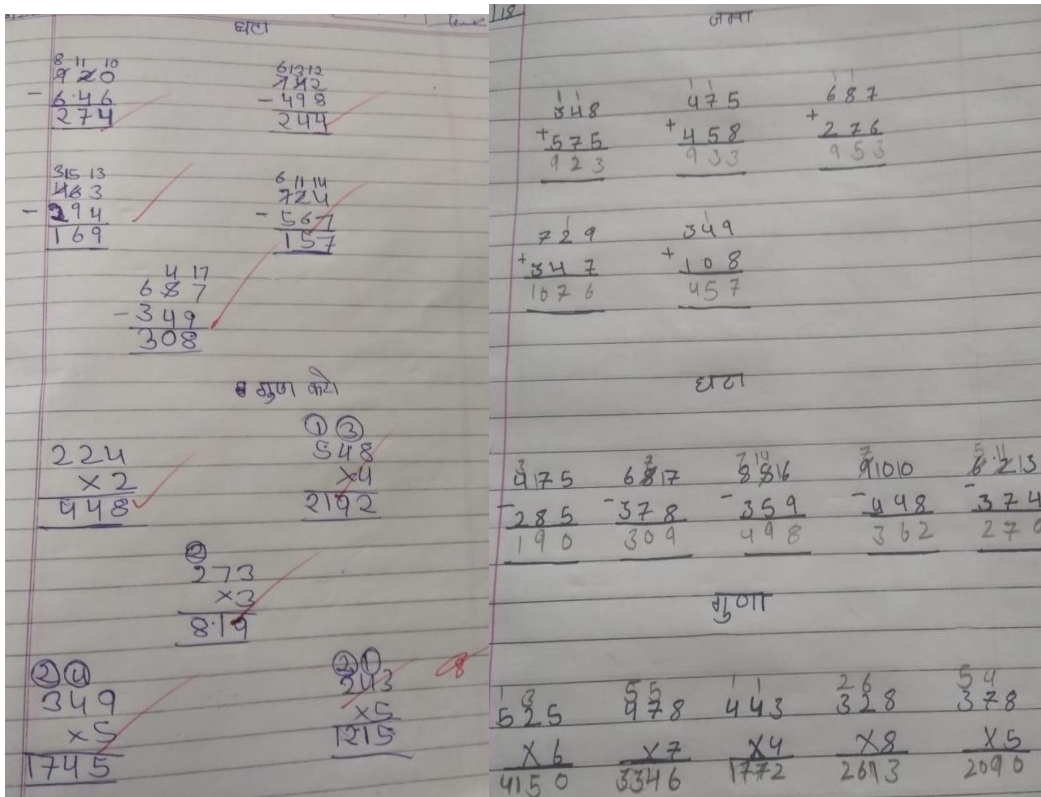 घटा
8 11 10
920
- 646
274
6 13 12
742
- 498
244
3 15 13
463
- 294
169
6 11 14
724
- 567
157
4 17
687
- 349
308
गुणा करो
224
×2
448
① ③
548
×4
2192
②
273
×3
819
② ④
349
×5
1745
② ①
243
×5
1215
118
जमा
1 1
348
+575
923
1 1
475
+458
933
1 1
687
+276
953
1
729
+347
1076
1
349
+108
457
घटा
3
4175
-285
190
7
6817
-378
309
7 14
8816
-359
498
7
91010
-448
362
5 11
6213
-374
270
गुणा
1 3
525
×6
4150
5 5
478
×7
3346
1 1
443
×4
1772
2 6
328
×8
2613
5 4
378
×5
2090